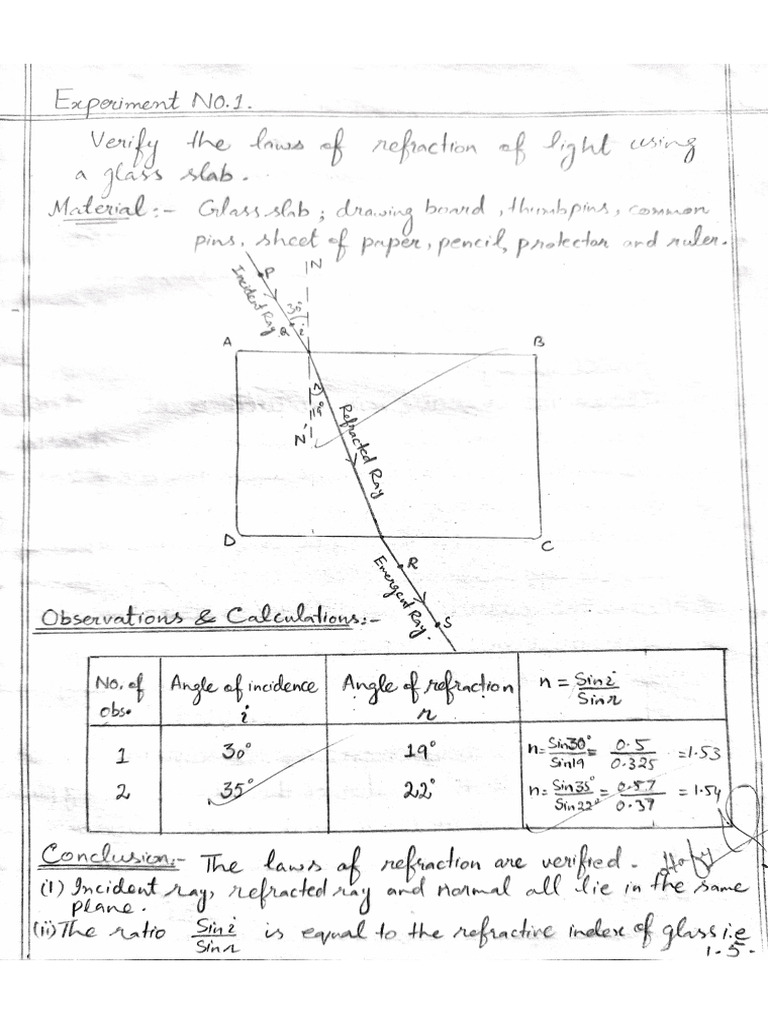 Experiment NO.1.
Verify the laws of refraction of light using
a glass slab.
Material:- Glass slab, drawing board, thumbpins, common
pins, sheet of paper, pencil, protector and ruler.
N
P
Incident Ray
Q
i
A
B
r
N'
Refracted Ray
D
C
R
Emergent Ray.
S
Observations & Calculations:-
No. of obs. Angle of incidence i Angle of refraction r n = Sin i / Sin r
1 30° 19° n = Sin30° / Sin19 = 0.5 / 0.325 = 1.53
2 35° 22° n = Sin35° / Sin22° = 0.57 / 0.37 = 1.54
Conclusion:- The laws of refraction are verified.
(i) Incident ray, refracted ray and normal all lie in the same
plane.
(ii) The ratio Sin i / Sin r is equal to the refractive index of glass i.e
1.5.